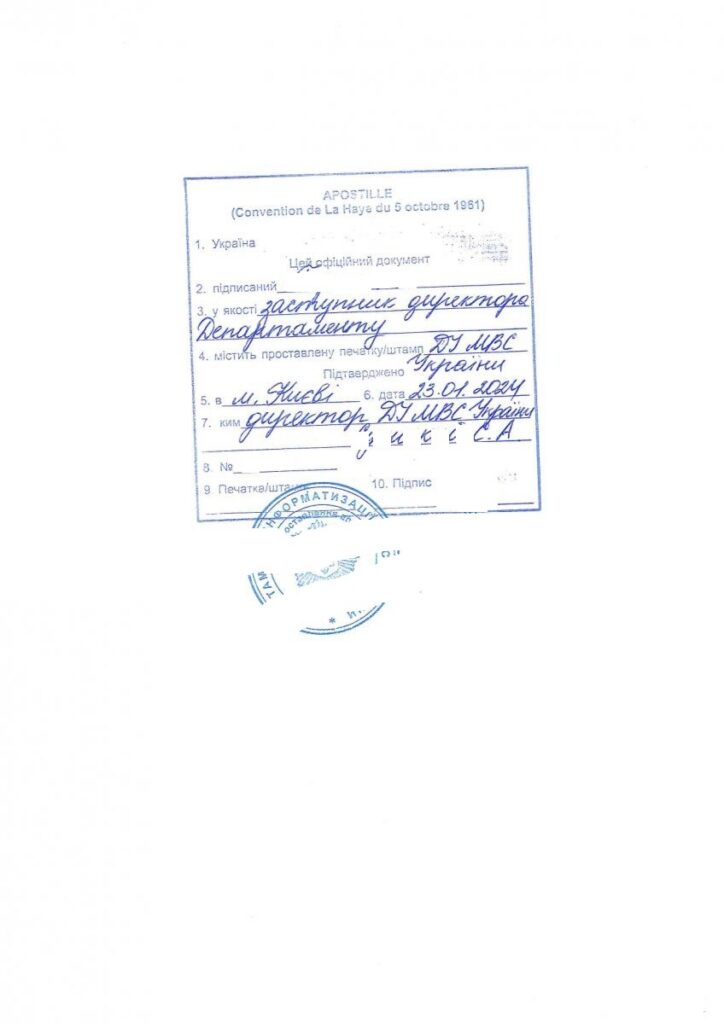 APOSTILLE
(Convention de La Haye du 5 octobre 1961)
1. Україна
Цей офіційний документ
2. підписаний
3. у якості заступник директора
Департаменту
4. містить проставлену печатку/штамп ДІ МВС
Підтверджено України
5. в м. Києві 6. дата 23.01.2024
7. ким директор ДІ МВС України
С.А
8. №
9 Печатка/штамп 10. Підпис
ІНФОРМАТИЗАЦІЇ